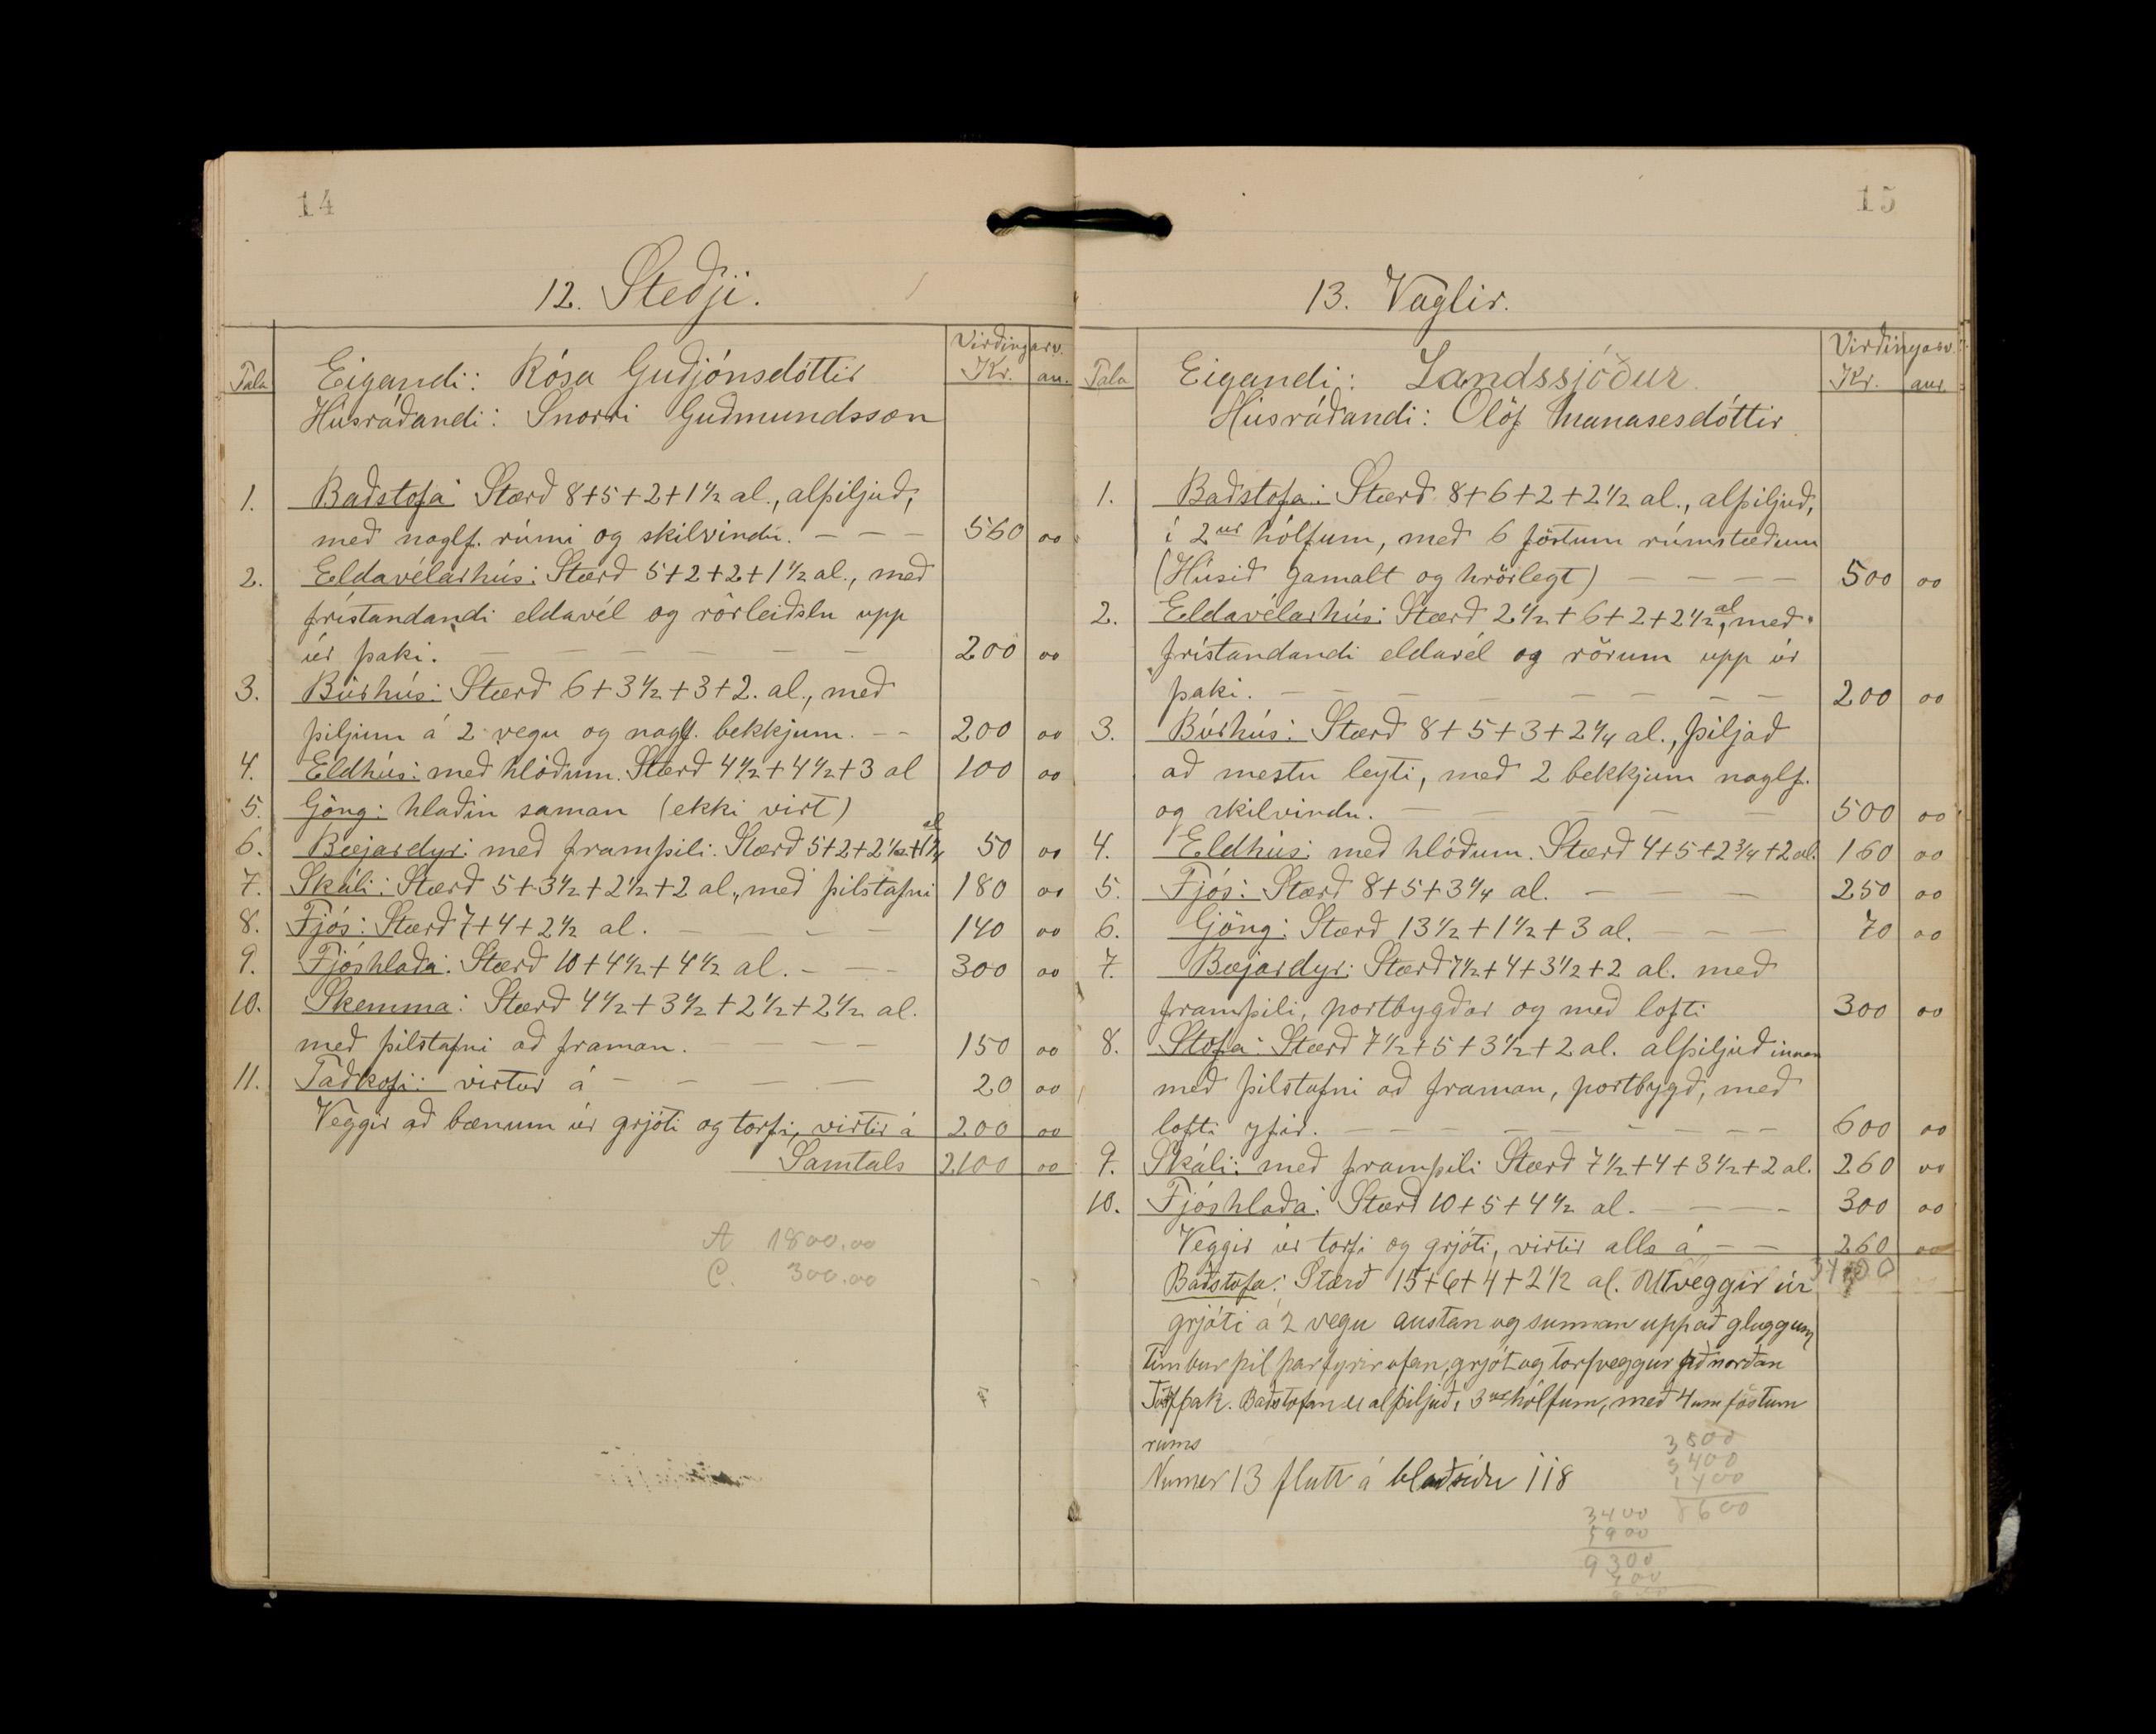 14
12. Stedji.
Virðingarv.
Tala
Eigandi: Rósa Guðjónsdóttir
Kr. au.
Húsráðandi: Snorri Guðmundsson
1. Baðstofa: Stærð 8+5+2+1½ al., alþiljuð,
með naglf. rúmi og skilvindu. — — — 560 00
2. Eldavélarhús: Stærð 5+2+2+1½ al., með
frístandandi eldavél og rörleiðslu upp
úr þaki. — — — — — — 200 00
3. Búrhús: Stærð 6+3½+3+2. al., með
þiljum á 2 vegu og naglf. bekkjum. — — 200 00
4. Eldhús: með hlóðum. Stærð 4½+4½+3 al 100 00
5. Göng: hlaðin saman (ekki virt)
6. Bæjardyr: með framþili. Stærð 5+2+2½+1¼ al 50 00
7. Skáli: Stærð 5+3½+2½+2 al., með þilstafni 180 00
8. Fjós: Stærð 7+4+2½ al. — — — — 140 00
9. Fjóshlaða: Stærð 10+4½+4½ al. — — — 300 00
10. Skemma: Stærð 4½+3½+2½+2½ al.
með þilstafni að framan. — — — — 150 00
11. Taðkofi: virtur á — — — — 20 00
Veggir að bænum úr grjóti og torfi, virtir á 200 00
Samtals 2100 00
A 1800.00
C. 300.00
15
13. Vaglir.
Virðingarv.
Tala
Eigandi: Landssjóður.
Kr. aur.
Húsráðandi: Ólöf Manasesdóttir.
1. Baðstofa: Stærð 8+6+2+2½ al., alþiljuð,
í 2ur hólfum, með 6 föstum rúmstæðum
(Húsið gamalt og hrörlegt) — — — — 500 00
2. Eldavélarhús: Stærð 2½+6+2+2½ al, með
frístandandi eldavél og rörum upp úr
þaki. — — — — — — — — 200 00
3. Búrhús: Stærð 8+5+3+2¼ al., þiljað
að mestu leyti, með 2 bekkjum naglf.
og skilvindu. — — — — — 500 00
4. Eldhús: með hlóðum. Stærð 4+5+2¾+2 al. 160 00
5. Fjós: Stærð 8+5+3¼ al. — — — 250 00
6. Gjöng: Stærð 13½+1½+3 al. — — — 70 00
7. Bæjardyr: Stærð 7½+4+3½+2 al. með
framþili, portbygðar og með lofti 300 00
8. Stofa: Stærð 7½+5+3½+2 al. alþiljuð innan
með þilstafni að framan, portbygð, með
lofti yfir. — — — — — — — — 600 00
9. Skáli: með framþili Stærð 7½+4+3½+2 al. 260 00
10. Fjóshlaða: Stærð 10+5+4½ al. — — — — 300 00
Veggir úr torfi og grjóti, virtir alls á — — 260 00
Baðstofa: Stærð 15+6+4+2½ al. Útveggir úr
grjóti á 2 vegu austan og sunnan upp að gluggum,
timburþil þar fyrir ofan, grjót og torfveggur að norðan
Torfþak. Baðstofan er alþiljuð, í 3ur hólfum, með 4um föstum
rúms
Numer 13 flutt á blaðsíðu 118
3800
3400
1400
8600
3400
5900
9300